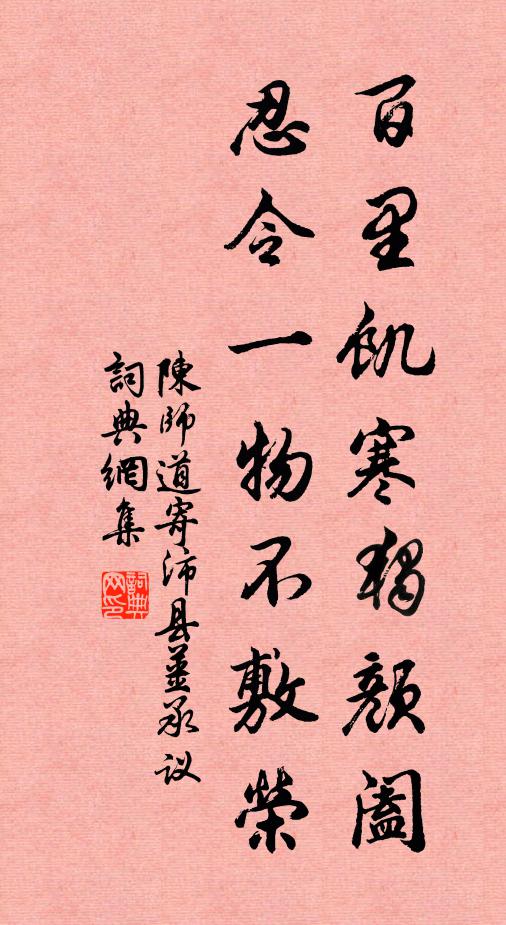 百里飢寒独颜阖
忍令一物不敷榮
陳師道寄沛县姜承议
詞典網集
詞典网印